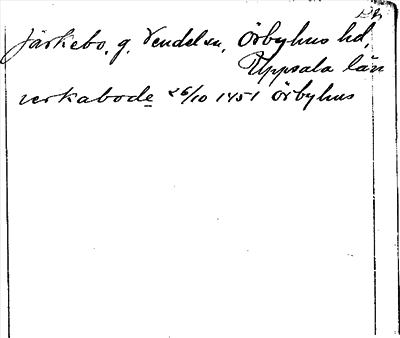 Järkebo, g. Vendels sn, Örbyhus hd,
Uppsala län
verkabode 26/10 1451 Örbyhus